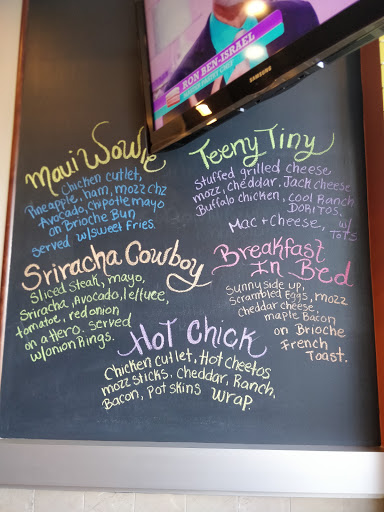 RON BEN-ISRAEL
SAMSUNG
Maui Wowie
Chicken cutlet,
Pineapple, ham, mozz chz
Avocado, Chipotle mayo
on Brioche Bun
served w/sweet Fries.
Teeny Tiny
Stuffed grilled cheese
mozz, cheddar, Jack cheese
Buffalo chicken, Cool Ranch
DORITOS.
Mac + Cheese, w/
Tots
Sriracha Cowboy
Sliced steak, mayo,
Sriracha, Avocado, lettuce,
tomatoe, red onion
on a Hero. Served
w/onion Rings.
Breakfast
In Bed
Sunny side up,
Scrambled Eggs, mozz
cheddar cheese,
maple Bacon
on Brioche
French
Toast.
Hot Chick
Chicken cutlet, Hot cheetos
mozz sticks, cheddar, Ranch,
Bacon, Pot skins Wrap.